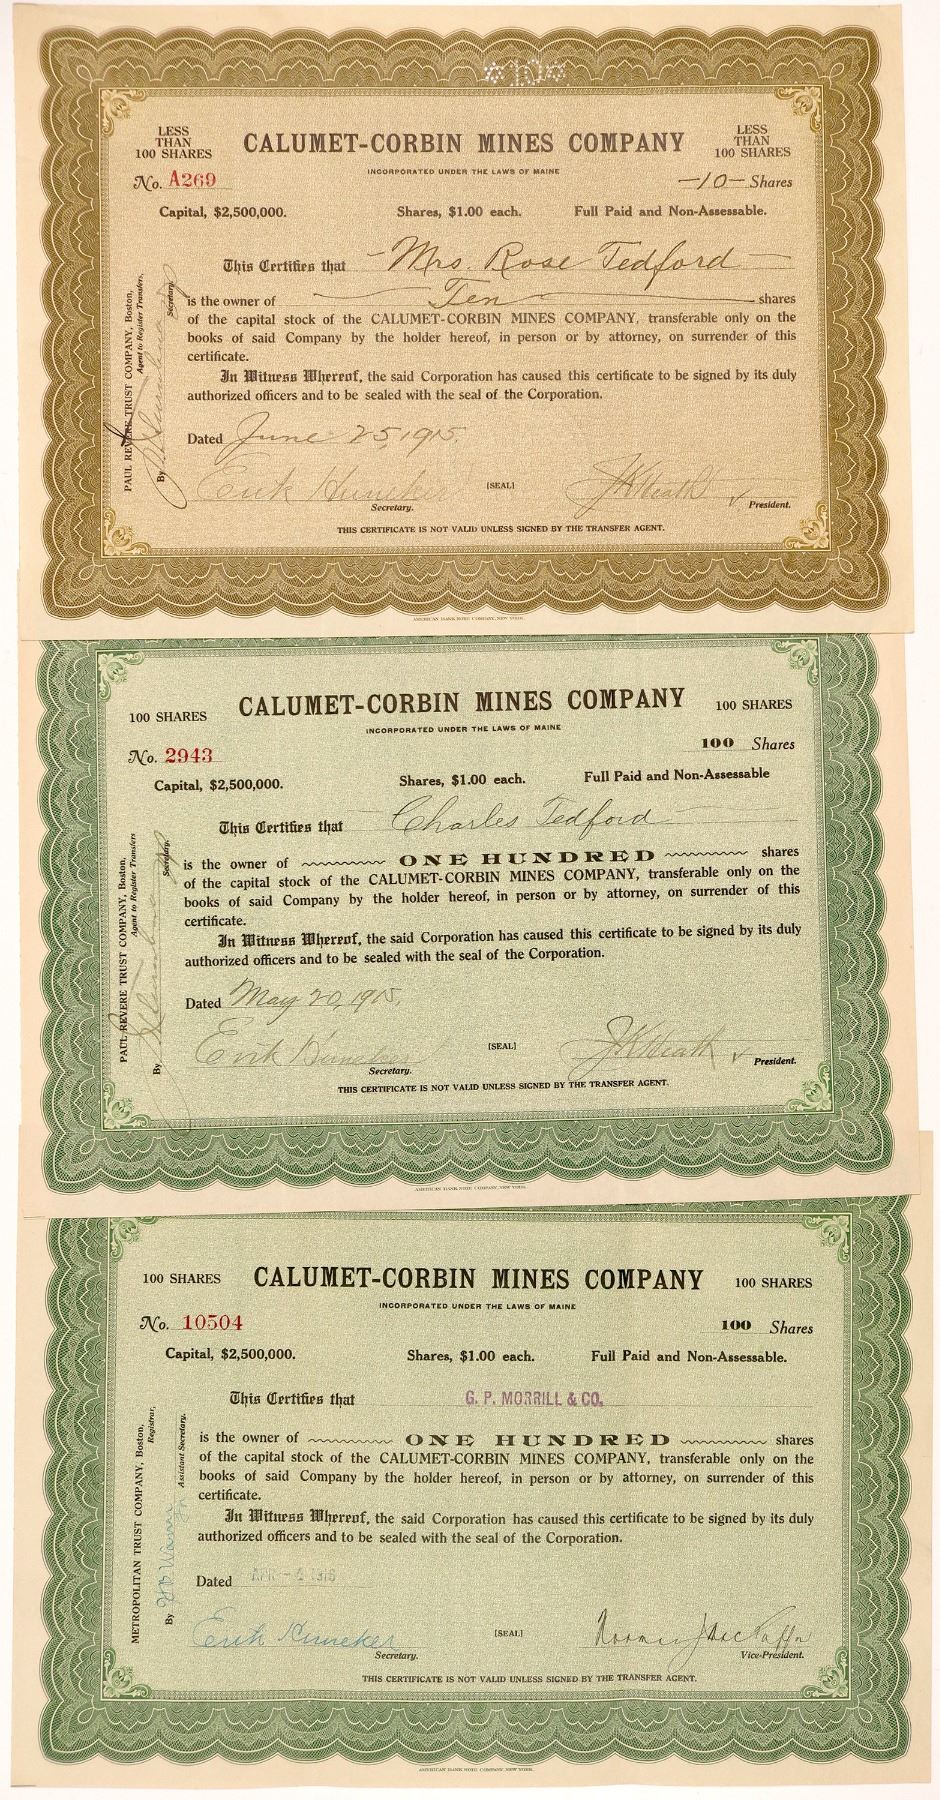 *10*
LESS THAN 100 SHARES
CALUMET-CORBIN MINES COMPANY
LESS THAN 100 SHARES
INCORPORATED UNDER THE LAWS OF MAINE
No. A269
—10— Shares
Capital, $2,500,000. Shares, $1.00 each. Full Paid and Non-Assessable.
This Certifies that Mrs. Rose Tedford
is the owner of Ten shares
of the capital stock of the CALUMET-CORBIN MINES COMPANY, transferable only on the
books of said Company by the holder hereof, in person or by attorney, on surrender of this
certificate.
In Witness Whereof, the said Corporation has caused this certificate to be signed by its duly
authorized officers and to be sealed with the seal of the Corporation.
Dated June 25, 1915.
Erik Huneker [SEAL] J K Heath
Secretary. President.
THIS CERTIFICATE IS NOT VALID UNLESS SIGNED BY THE TRANSFER AGENT.
PAUL REVERE TRUST COMPANY, Boston,
Agent to Register Transfers.
By Secretary.
AMERICAN BANK NOTE COMPANY, NEW YORK.
100 SHARES CALUMET-CORBIN MINES COMPANY 100 SHARES
INCORPORATED UNDER THE LAWS OF MAINE
No. 2943 100 Shares
Capital, $2,500,000. Shares, $1.00 each. Full Paid and Non-Assessable
This Certifies that Charles Tedford
is the owner of ONE HUNDRED shares
of the capital stock of the CALUMET-CORBIN MINES COMPANY, transferable only on the
books of said Company by the holder hereof, in person or by attorney, on surrender of this
certificate.
In Witness Whereof, the said Corporation has caused this certificate to be signed by its duly
authorized officers and to be sealed with the seal of the Corporation.
Dated May 20, 1915.
Erik Huneker [SEAL] J K Heath
Secretary. President.
THIS CERTIFICATE IS NOT VALID UNLESS SIGNED BY THE TRANSFER AGENT.
PAUL REVERE TRUST COMPANY, Boston,
Agent to Register Transfers
By Secretary.
AMERICAN BANK NOTE COMPANY, NEW YORK.
100 SHARES CALUMET-CORBIN MINES COMPANY 100 SHARES
INCORPORATED UNDER THE LAWS OF MAINE
No. 10504 100 Shares
Capital, $2,500,000. Shares, $1.00 each. Full Paid and Non-Assessable.
This Certifies that G. P. MORRILL & CO.
is the owner of ONE HUNDRED shares
of the capital stock of the CALUMET-CORBIN MINES COMPANY, transferable only on the
books of said Company by the holder hereof, in person or by attorney, on surrender of this
certificate.
In Witness Whereof, the said Corporation has caused this certificate to be signed by its duly
authorized officers and to be sealed with the seal of the Corporation.
Dated
Erik Huneker [SEAL]
Secretary. Vice-President.
THIS CERTIFICATE IS NOT VALID UNLESS SIGNED BY THE TRANSFER AGENT.
METROPOLITAN TRUST COMPANY, Boston,
Registrar,
By Assistant Secretary.
AMERICAN BANK NOTE COMPANY, NEW YORK.